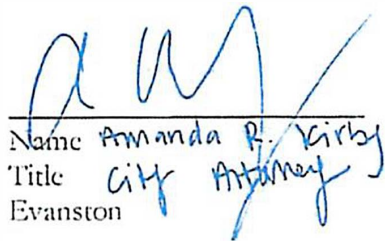 Name Amanda R. Kirby
Title City Attorney
Evanston